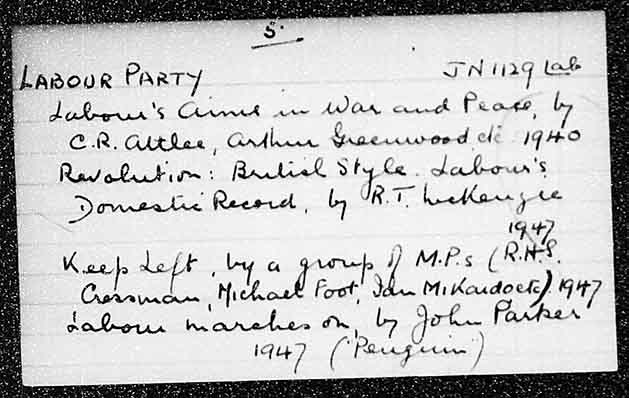 5.
LABOUR PARTY JN 1129 Lab
Labour's Aims in War and Peace, by
C.R. Attlee, Arthur Greenwood etc 1940
Revolution: British Style. Labour's
Domestic Record, by R.T. McKenzie
1947
Keep Left, by a group of M.P.s (R.H.S.
Crossman, Michael Foot, Ian Mikardo etc) 1947
Labour marches on, by John Parker
1947 ('Penguin')